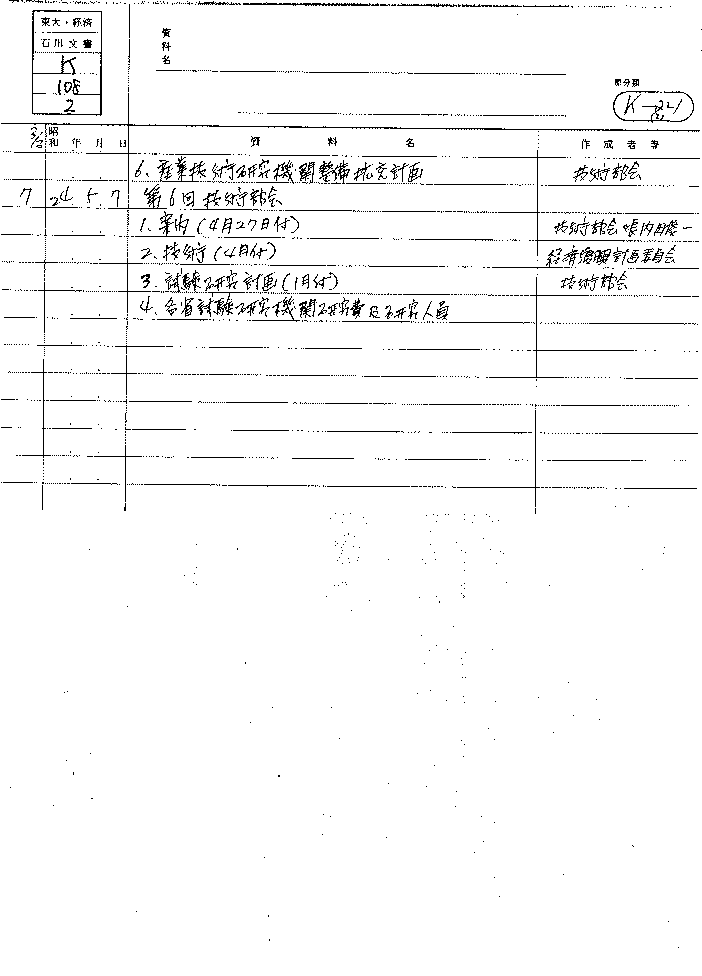 東大・経済
石川文書
K
108
2
資料名
部分類
K-221
(2)
昭和 年 月 日 資料名 作成者等
6. 産業技術研究機関整備拡充計画 技術部会
7 24 5 7 第6回技術部会
1. 案内(4月27日付) 技術部会 堀内
2. 技術(4月付) 経済復興計画委員会
3. 試験研究計画(1月付) 技術部会
4. 各省試験研究機関研究費及研究人員